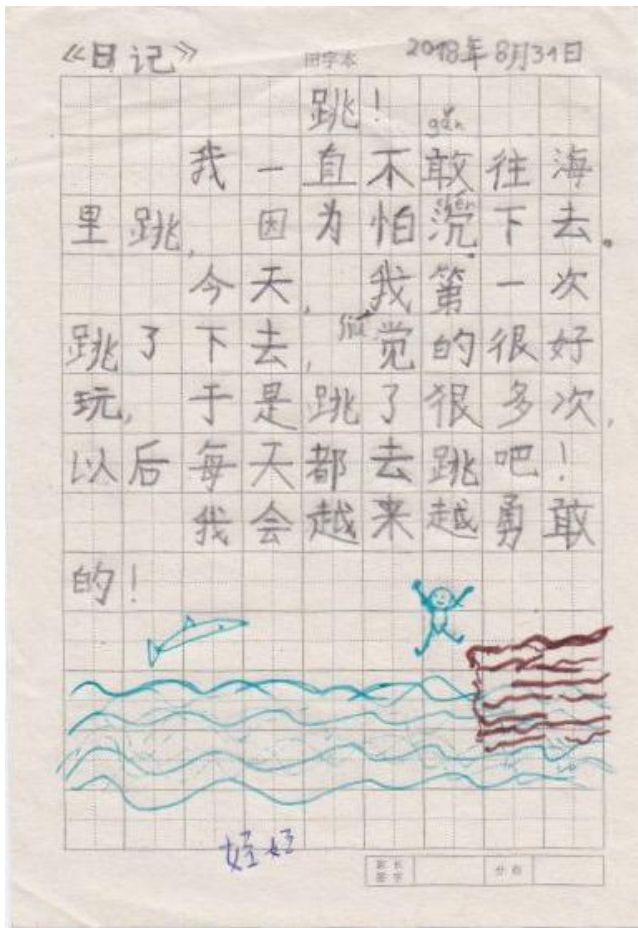 《日记》 田字本 2018年8月31日
跳！
gǎn
我一直不敢往海
chén
里跳，因为怕沉下去。
今天，我第一次
jué
跳了下去，觉的很好
玩，于是跳了很多次，
以后每天都去跳吧！
我会越来越勇敢
的！
家长签字 分数